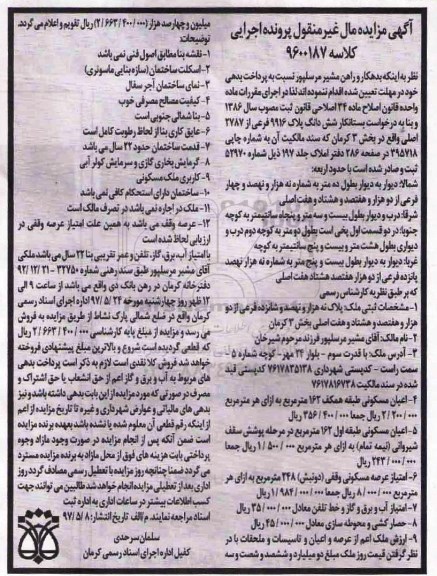 آگهی مزایده مال غیر منقول پرونده اجرایی
کلاسه ۹۶۰۰۱۸۷
نظر به اینکه بدهکار و راهن مشیر مرسلپور نسبت به پرداخت بدهی
خود در مهلت تعیین شده اقدام ننموده اند لذا در اجرای مقررات ماده
واحده قانون اصلاح ماده ۳۴ اصلاحی قانون ثبت مصوب سال ۱۳۸۶
و بنا به درخواست بستانکار شش دانگ پلاک ۹۹۱۶ فرعی از ۲۷۸۷
اصلی واقع در بخش ۳ کرمان که سند مالکیت آن به شماره چاپی
۲۹۵۷۱۸ در صفحه ۲۸۶ دفتر املاک جلد ۱۹۷ ذیل شماره ۵۲۹۷۰
ثبت و صادر شده است با حدود اربعه:
شمالا: دیوار به دیوار بطول ده متر به شماره نه هزار و نهصد و چهار
فرعی از دو هزار و هفتصد و هشتاد و هفت اصلی
شرقا: درب و دیوار بطول بیست و سه متر و پنجاه سانتیمتر به کوچه
جنوبا: در دو قسمت اول پخی است بطول دو متر به کوچه دوم درب و
دیواری بطول هشت متر و بیست و پنج سانتیمتر به کوچه
غربا: دیوار به دیوار بطول بیست و پنج متر به شماره نه هزار نهصد
پانزده فرعی از دو هزار هفتصد هشتاد هفت اصلی
که بر طبق نظر به کارشناس رسمی
۱- مشخصات ثبتی ملک: پلاک نه هزار و نهصد و شانزده فرعی از دو
هزار و هفتصد و هشتاد و هفت اصلی بخش ۳ کرمان
۲- نام مالک: آقای مشیر مرسلپور فرزند مرحوم شیرخان
۳- آدرس ملک: با قدرت سوم - بلوار ۲۴ مهر - کوچه شماره ۵
سمت راست - کدپستی شهرداری ۷۶۱۷۸۳۵۱۳۸ کدپستی قید
شده در سند مالکیت ۷۶۱۷۸۱۶۷۳۸
۴- اعیان مسکونی طبقه همکف ۱۶۲ مترمربع به ازای هر مترمربع
۲/۲۰۰/۰۰۰ ریال جمعا ۳۵۶/۴۰۰/۰۰۰ ریال
۵- اعیان مسکونی طبقه اول ۱۶۲ مترمربع در مرحله پوشش سقف
شیروانی (نیمه تمام) به ازای هر مترمربع ۱/۵۰۰/۰۰۰ ریال جمعا
۲۴۳/۰۰۰/۰۰۰ ریال
۶- امتیاز عرصه مسکونی وقفی (دونبش) ۲۴۸ مترمربع به ازای هر
مترمربع ۸/۰۰۰/۰۰۰ ریال جمعا ۱/۹۸۴/۰۰۰/۰۰۰ ریال
۷- امتیاز آب و برق و گاز و خط تلفن معادل ۳۵/۰۰۰/۰۰۰ ریال
۸- حصار کشی و محوطه سازی معادل ۴۵/۰۰۰/۰۰۰ ریال
۹- ارزش ملک اعم از عرصه و اعیان و تاسیسات و ملحقات با در
نظر گرفتن قیمت روز ملک مبلغ دو میلیارد و ششصد و شصت و سه
میلیون و چهارصد هزار (۲/۶۶۳/۴۰۰/۰۰۰) ریال تقویم و اعلام می گردد.
توضیحات:
۱- نقشه بنا مطابق اصول فنی نمی باشد
۲- اسکلت ساختمان (سازه بنایی ماسونری)
۳- نمای ساختمان آجر سفال
۴- کیفیت مصالح مصرفی خوب
۵- بنا شمالی جنوبی است
۶- عایق کاری بنا از لحاظ رطوبت کامل است
۷- قدمت ساختمان حدود ۲۲ سال می باشد
۸- گرمایش بخاری گازی و سرمایش کولر آبی
۹- کاربری ملک مسکونی
۱۰- ساختمان دارای استحکام کافی نمی باشد
۱۱- ملک در اجاره نمی باشد در تصرف مالک است
۱۲- عرصه وقف می باشد به همین علت امتیاز عرصه وقفی در
ارزیابی لحاظ شده است
با امتیاز آب، برق، گاز، تلفن و عمر تقریبی بنا ۲۲ سال می باشد ملکی
آقای مشیر مرسلپور طبق سند رهنی شماره ۳۳۷۵۰ - ۹۲/۱۲/۳۱
دفترخانه کرمان در رهن بانک دی واقع می باشد از ساعت ۹ الی
۱۲ ظهر روز چهارشنبه مورخه ۹۷/۵/۲۴ اداره اجرای اسناد رسمی
کرمان واقع در ضلع شمالی پارک نشاط از طریق مزایده به فروش
می رسد و مزایده از مبلغ پایه کارشناسی ۲/۶۶۳/۴۰۰/۰۰۰ ریال
که قطعی گردیده است شروع و بالاترین مبلغ پیشنهادی فروخته
خواهد شد فروش کلا نقدی است لازم به ذکر است پرداخت بدهی
های مربوط به آب و برق و گاز اعم از حق انشعاب یا حق اشتراک و
مصرف در صورتی که مورد مزایده از این بابت بدهی داشته باشد و نیز
بدهی های مالیاتی و عوارض شهرداری و غیره تا تاریخ مزایده از اعم
از اینکه رقم قطعی آن معلوم شده یا نشده باشد بعهده برنده مزایده
است ضمن آنکه پس از انجام مزایده در صورت وجود مازاد وجوه
پرداختی بابت هزینه های فوق از محل مازاد به برنده مزایده مسترد
می گردد ضمنا چنانچه روز مزایده با تعطیل رسمی مصادف گردد روز
اداری بعد از تعطیلی مزایده انجام خواهد شد طالبین می توانند جهت
کسب اطلاعات بیشتر در ساعات اداری به اداره ثبت
اسناد مراجعه نمایند. م/الف تاریخ انتشار: ۹۷/۵/۸
سلمان سرحدی
کفیل اداره اجرای اسناد رسمی کرمان